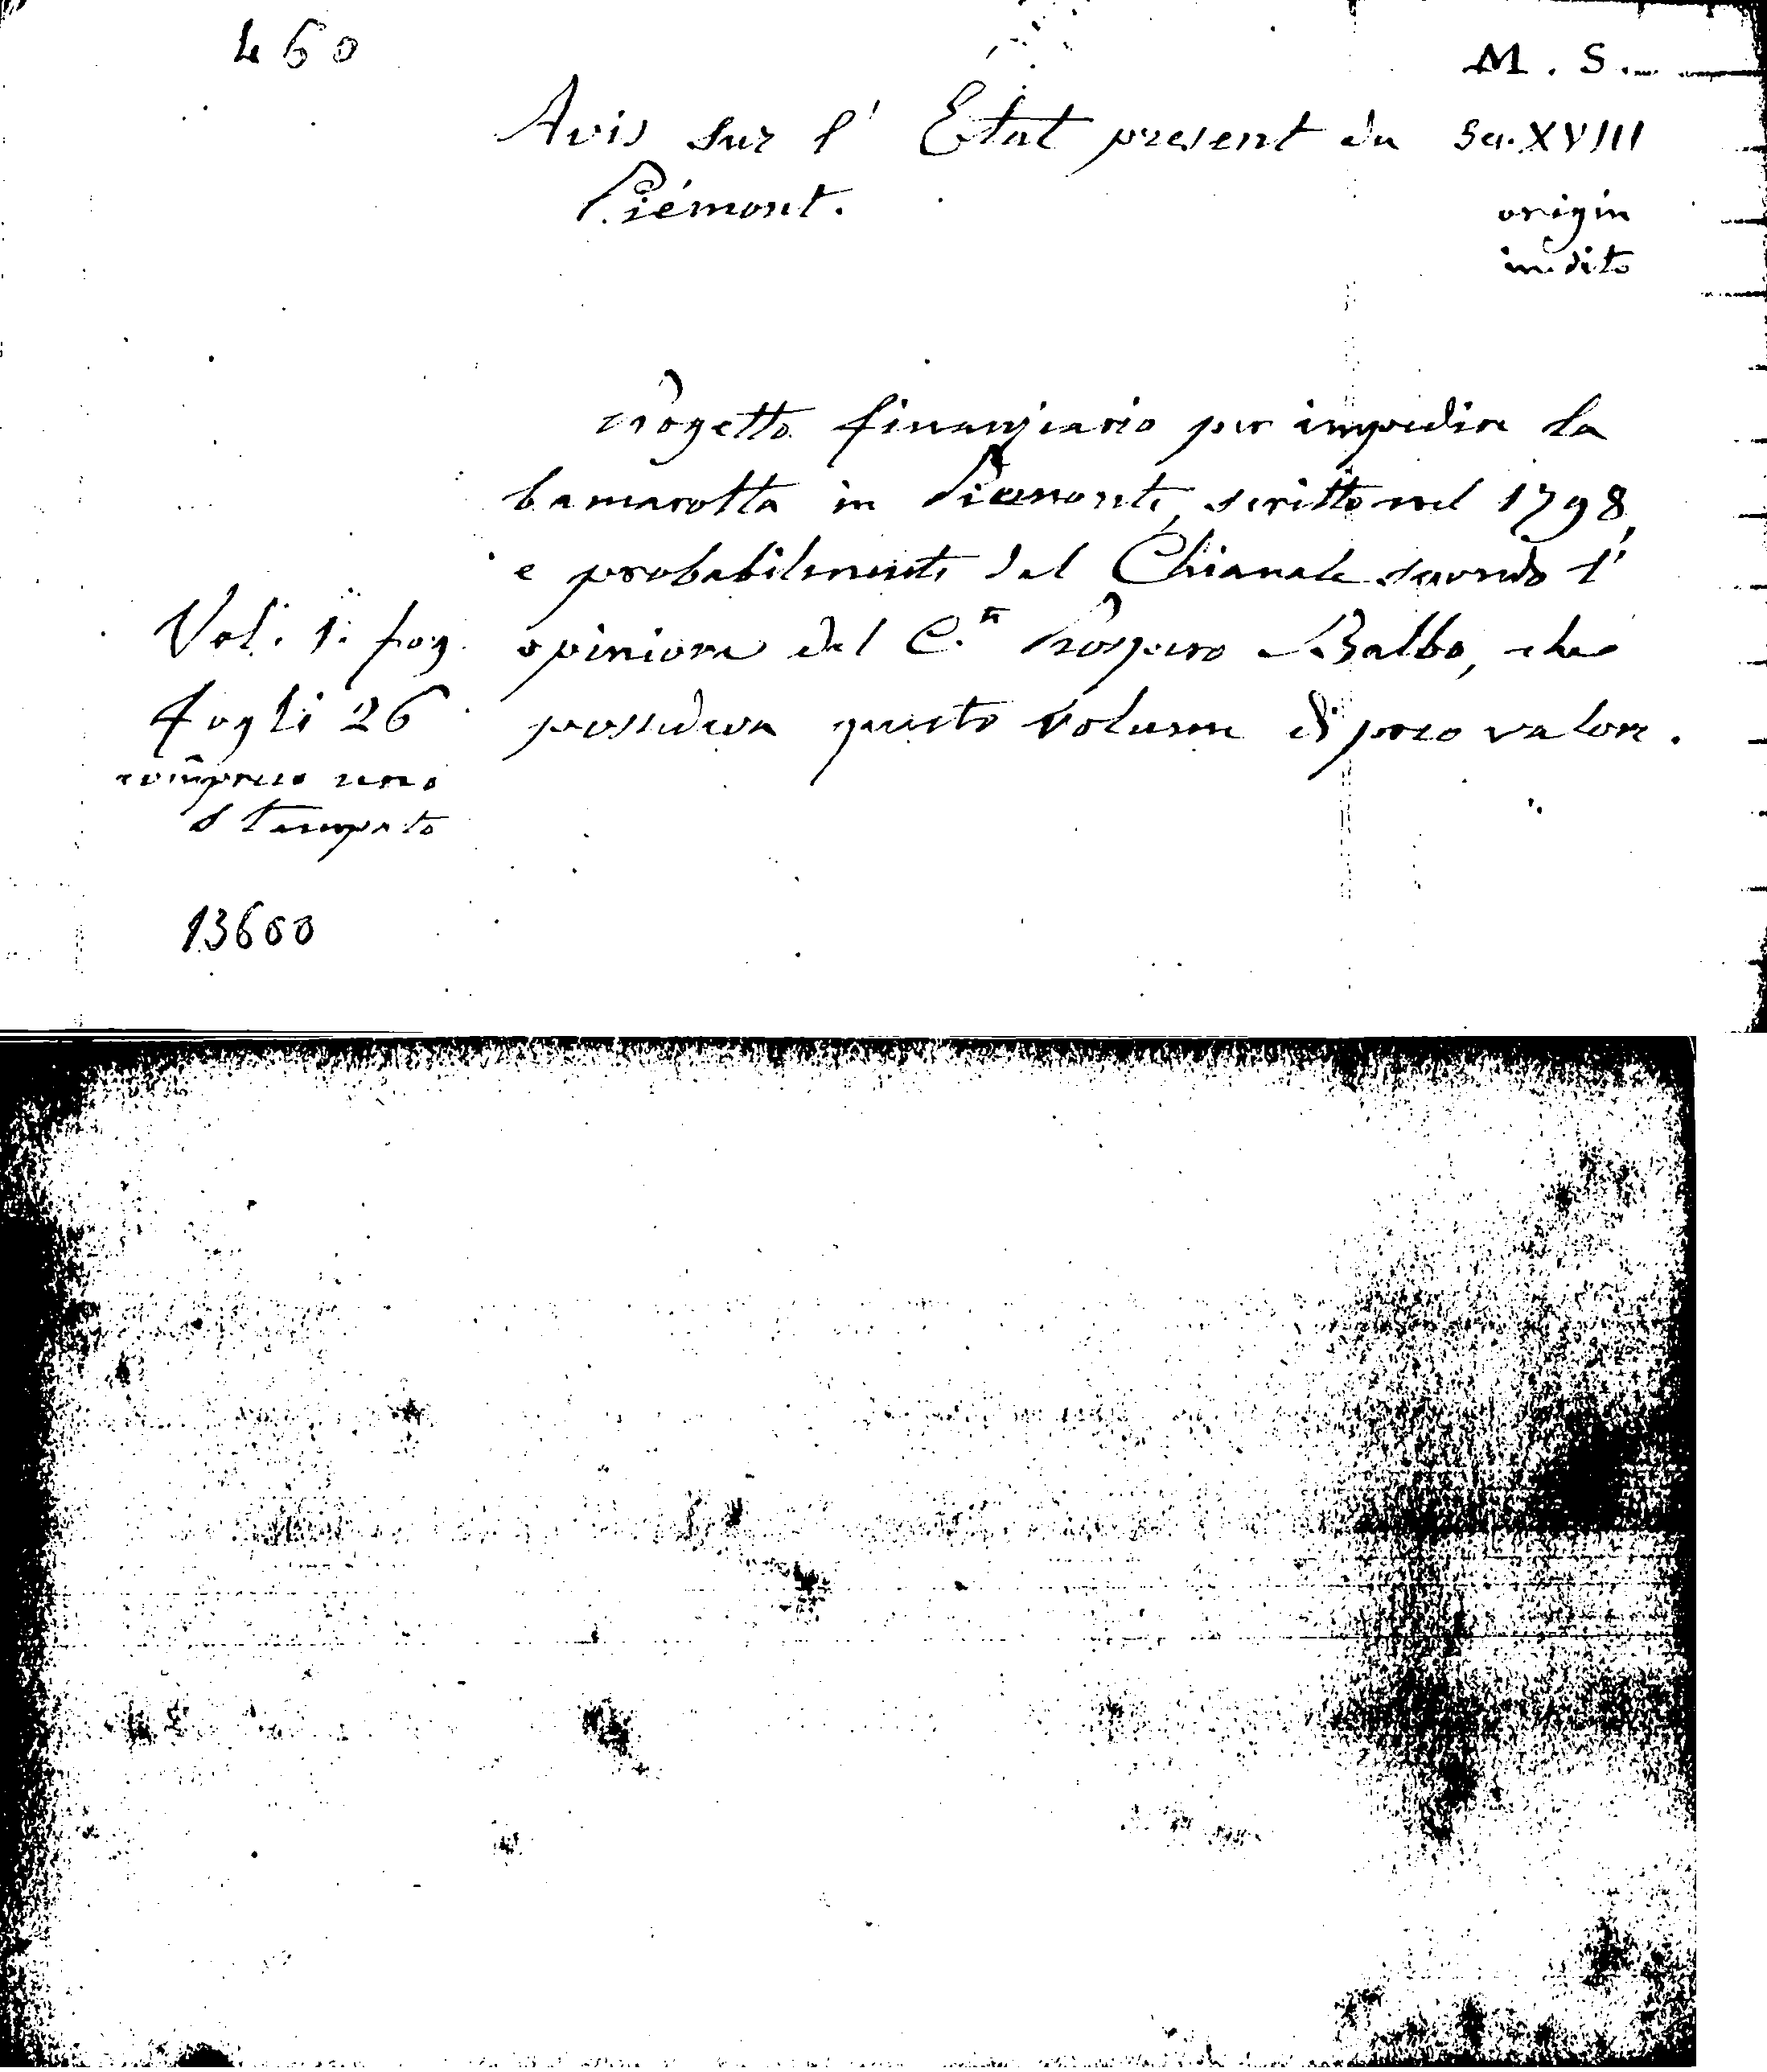 460
M. S.
Avis sur l'Etat present du
Piémont.
Sec. XVIII
origin
inedito
Progetto finanziario per impedire la
bamarotta in Piemonte, scritto nel 1798,
e probabilmente dal Chianale secondo l'
opinione del C.te Prospero Balbo, che
possedeva questo volume di poco valore.
Vol. 1. fog.
fogli 26
compreso uno
stampato
13600